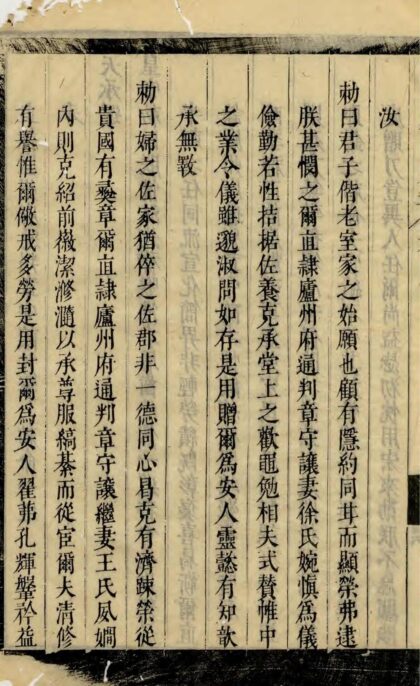 汝
勅曰君子偕老室家之始願也顧有隱約同茸而顯榮弗逮
朕甚憫之爾直隸廬州府通判章守讓妻徐氏婉慎為儀
儉勤若性拮据佐養克承堂上之歡黽勉相夫式贊帷中
之業令儀雖邈淑問如存是用贈爾為安人靈懿有知歆
承無斁
勅曰婦之佐家猶倅之佐郡非一德同心曷克有濟踈榮從
貴國有彝章爾直隸廬州府通判章守讓繼妻王氏夙嫺
內則克紹前徽潔滫瀡以承尊服縞綦而從宦爾夫清修
有譽惟爾儆戒多勞是用封爾為安人翟茀孔輝鞶衿益